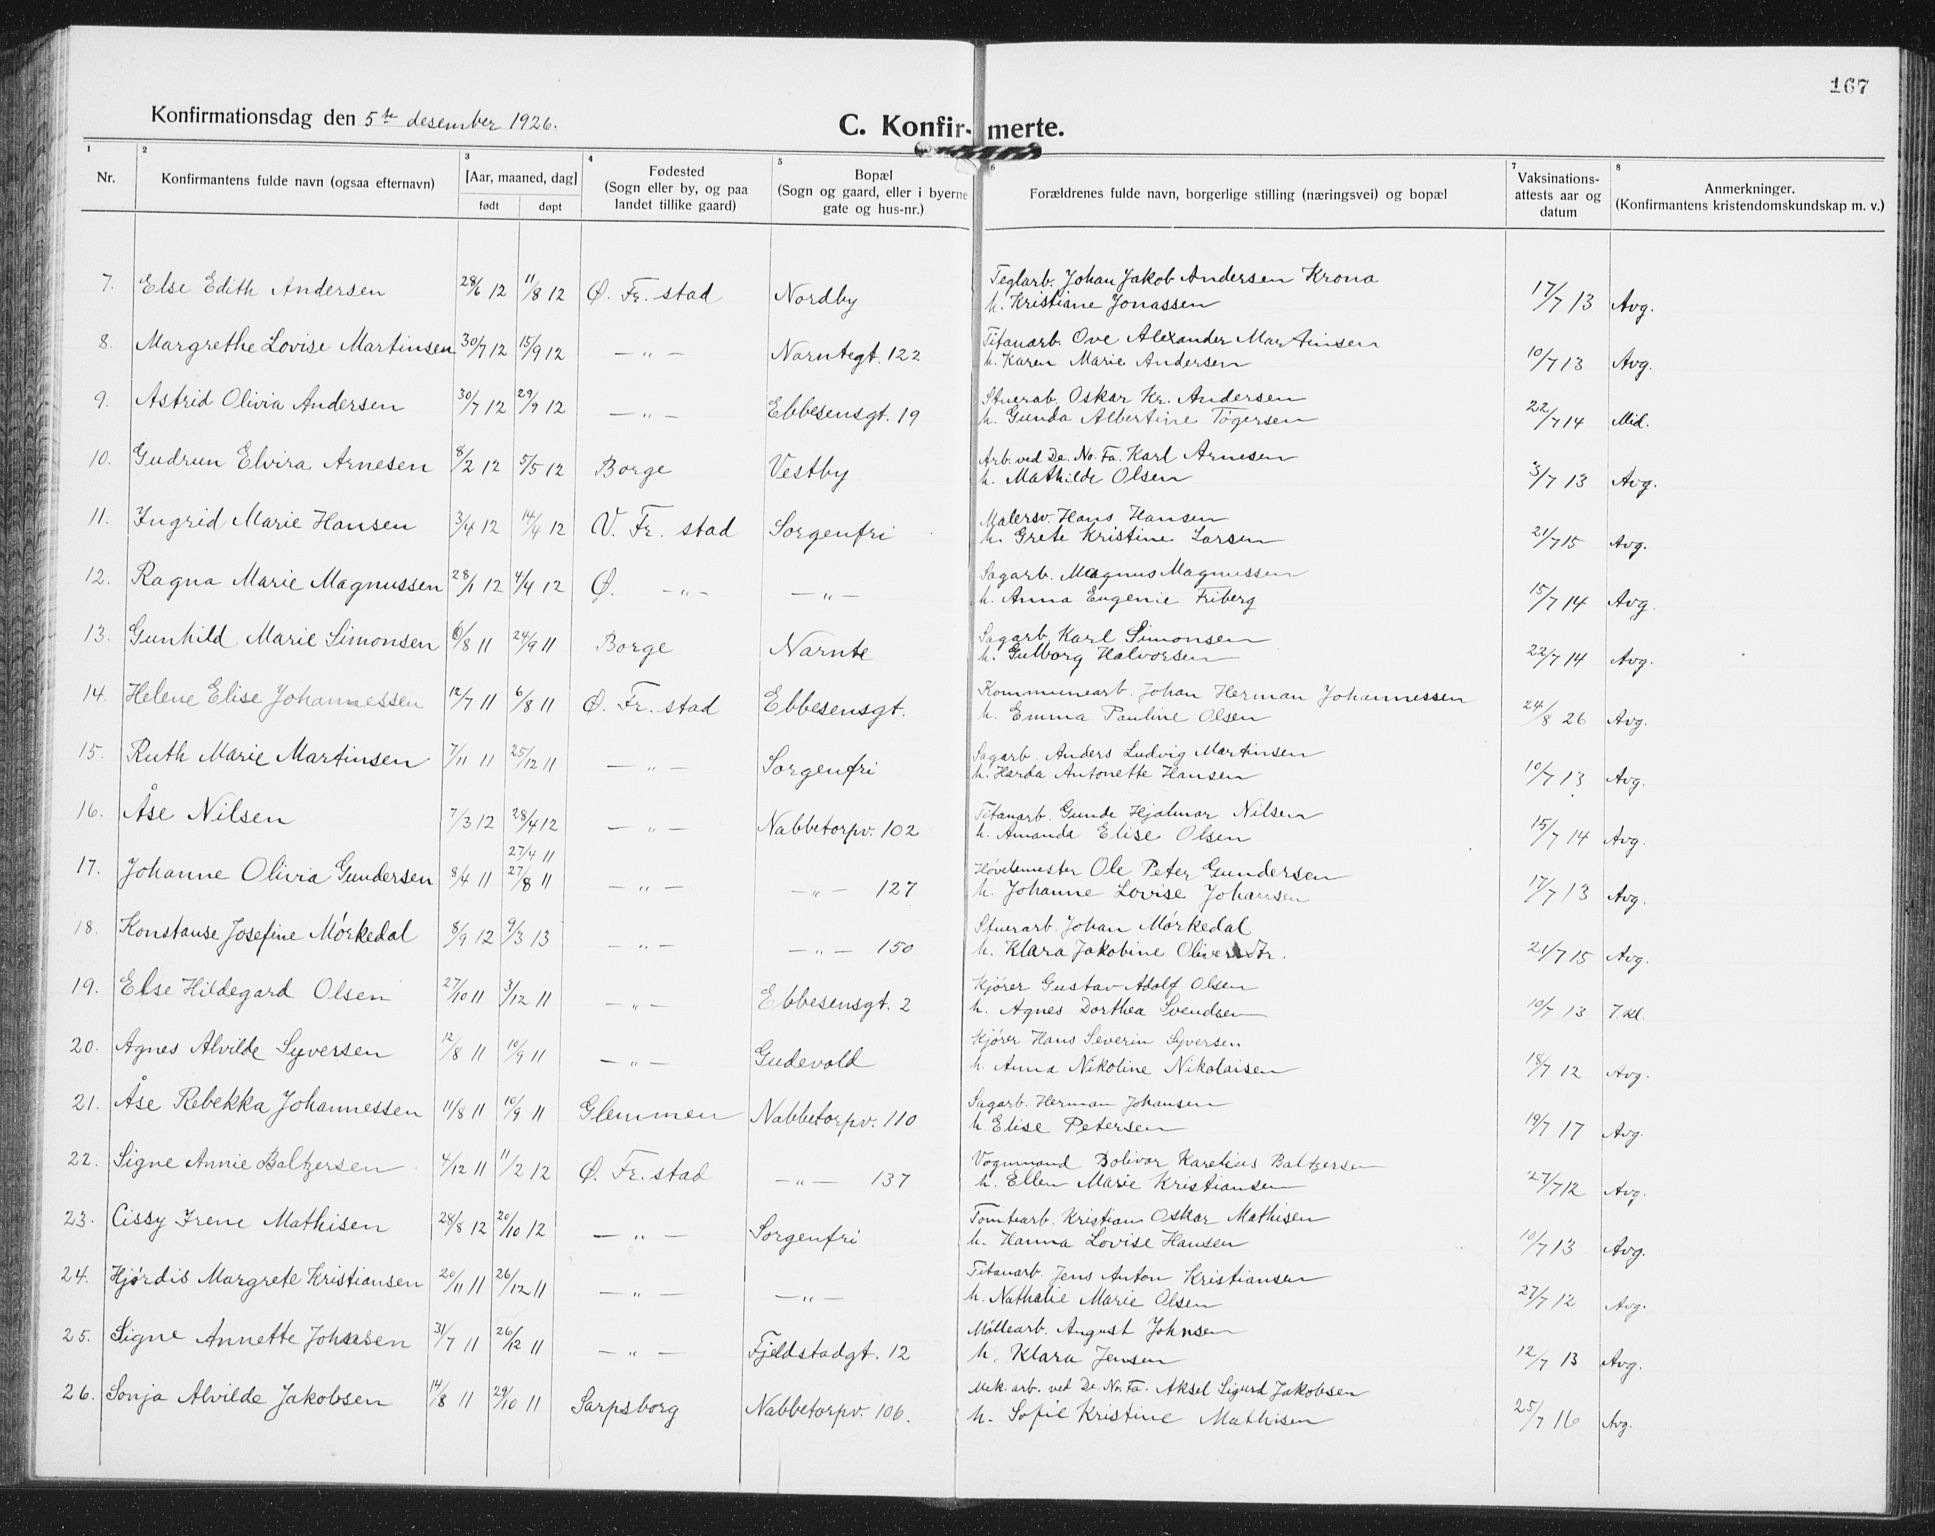 167
Konfirmationsdag den 5te desember 1926.
C. Konfir- merte.
1 2 3 4 5 6 7 8
Nr. Konfirmantens fulde navn (ogsaa efternavn) [Aar, maaned, dag] født døpt Fødested (Sogn eller by, og paa landet tillike gaard) Bopæl (Sogn og gaard, eller i byerne gate og hus-nr.) Forældrenes fulde navn, borgerlige stilling (næringsvei) og bopæl Vaksinations-attests aar og datum Anmerkninger. (Konfirmantens kristendomskundskap m. v.)
7. Else Edith Andersen 28/6 12 11/8 12 Ø. Fr. stad Nordby Teglarb. Johan Jakob Andersen Krona
h. Kristiane Jonassen 17/7 13 Avg.
8. Margrethe Lovise Martinsen 30/7 12 15/9 12 — " — Narntegt. 122 Titanarb. Ove Alexander Martinsen
h. Karen Marie Andersen 10/7 13 Avg.
9. Astrid Olivia Andersen 30/7 12 29/9 12 — " — Ebbesensgt. 19 Stuerab. Oskar Kr. Andersen
h. Gunda Albertine Tøgersen 22/7 14 Mid.
10. Gudrun Elvira Arnesen 8/2 12 5/5 12 Borge Vestby Arb. ved De. No. Fa. Karl Arnesen
h. Mathilde Olsen 3/7 13 Avg.
11. Ingrid Marie Hansen 3/4 12 14/4 12 V. Fr. stad Sorgenfri Malersv. Hans Hansen
h. Grete Kristine Larsen 21/7 15 Avg.
12. Ragna Marie Magnussen 28/1 12 4/4 12 Ø. — " — — " — Sagarb. Magnus Magnussen
h. Anna Eugenie Friberg 15/7 14 Avg.
13. Gunhild Marie Simonsen 6/8 11 24/9 11 Borge Narnte Sagarb. Karl Simonsen
h. Gulborg Halvorsen 22/7 14 Avg.
14. Helene Elise Johannessen 12/7 11 6/8 11 Ø. Fr. stad Ebbesensgt. Kommunearb. Johan Herman Johannessen
h. Emma Pauline Olsen 24/8 26 Avg.
15. Ruth Marie Martinsen 7/11 11 25/12 11 — " — Sorgenfri Sagarb. Anders Ludvig Martinsen
h. Harda Antonette Hansen 10/7 13 Avg.
16. Åse Nilsen 7/3 12 28/4 12 — " — Nabbetorpv. 102 Titanarb. Gunde Hjalmar Nilsen
h. Amanda Elise Olsen 15/7 14 Avg.
27/4 11
17. Johanne Olivia Gundersen 8/4 11 27/8 11 — " — — " — 127 Høvlemester Ole Peter Gundersen
h. Johanne Lovise Johansen 17/7 13 Avg.
18. Konstanse Josefine Mørkedal 8/9 12 9/3 13 — " — — " — 150 Stuerarb. Johan Mørkedal
h. Klara Jakobine 21/7 15 Avg.
19. Else Hildegard Olsen 27/10 11 3/12 11 — " — Ebbesensgt. 2 Kjører Gustav Adolf Olsen
h. Agnes Dorthea Svendsen 10/7 13 T.kl.
20. Agnes Alvilde Syversen 12/8 11 10/9 11 — " — Gudevold Kjører Hans Severin Syversen
h. Anna Nikoline Nikolaisen 18/7 12 Avg.
21. Åse Rebekka Johannessen 11/8 11 10/9 11 Glemmen Nabbetorpv. 110 Sagarb. Herman Johansen
h. Elise Petersen 19/7 17 Avg.
22. Signe Annie Baltzersen 4/12 11 11/2 12 Ø. Fr. stad — " — 137 Vognmand Bolivar Karelius Baltzersen
h. Ellen Marie Kristiansen 27/7 12 Avg.
23. Cissy Irene Mathisen 28/8 12 20/10 12 — " — Sorgenfri Tomtearb. Kristian Oskar Mathisen
h. Hanna Lovise Hansen 10/7 13 Avg.
24. Hjørdis Margrete Kristiansen 20/11 11 26/12 11 — " — — " — Titanarb. Jens Anton Kristiansen
h. Nathalie Marie Olsen 27/7 12 Avg.
25. Signe Annette Johnsen 31/7 11 26/12 11 — " — Fjeldstadgt. 12 Møllearb. August Johnsen
h. Klara Jensen 12/7 13 Avg.
26. Sonja Alvilde Jakobsen 14/8 11 29/10 11 Sarpsborg Nabbetorpv. 106. Mek. arb. ved De. No. Fa. Aksel Sigurd Jakobsen
h. Sofie Kristine Mathisen 25/7 16 Avg.